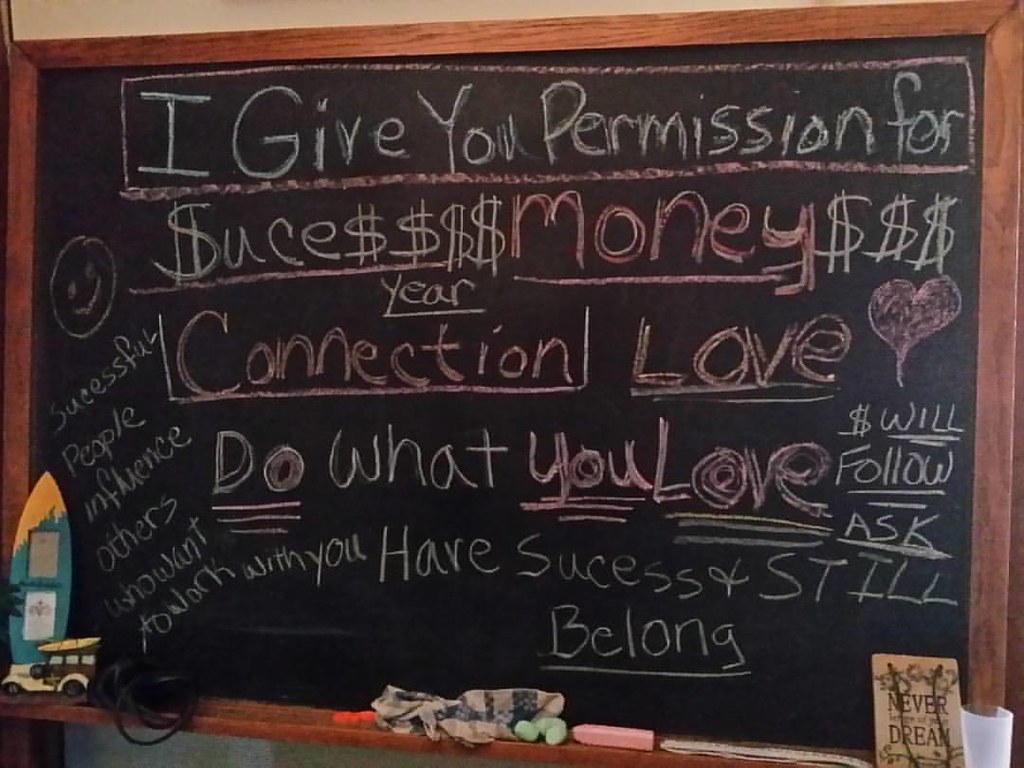 I Give You Permission for
$uce$$$$ Money $$$
year
Connection Love
Do what you Love
$ WILL
FOLLOW
ASK
Sucessful
People
influence
others
who want
to work with you
Have Sucess & STILL
Belong
NEVER
DREAM